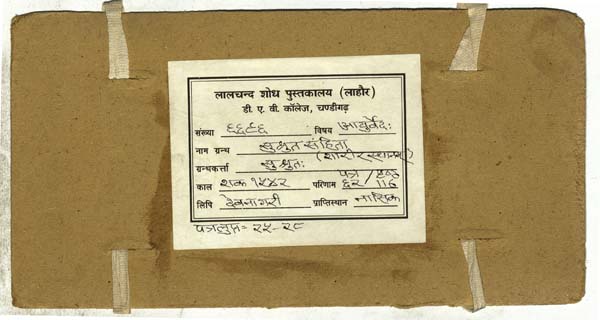 लालचन्द शोध पुस्तकालय (लाहौर)
डी. ए. वी. कॉलेज, चण्डीगढ़
संख्या ६६९६ विषय आयुर्वेदः
नाम ग्रन्थ सुश्रुत संहिता
(शारीरस्थानम्)
ग्रन्थकर्त्ता सुश्रुतः
काल शक १५४२ परिणाम पत्र / ६२
लिपि देवनागरी प्राप्तिस्थान नासिक
पत्रलुप्त = २५-२८